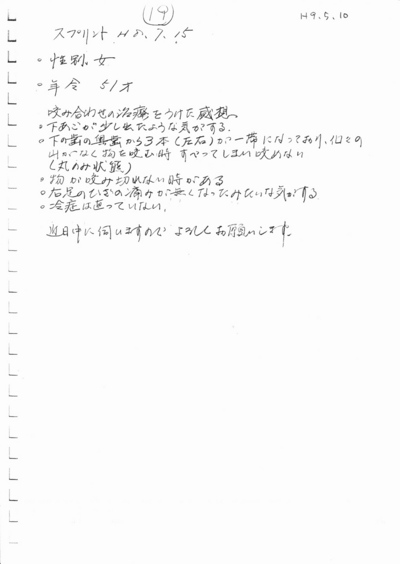 19
H9.5.10
スプリント H8.7.15
○性別 女
○年令 51才
咬み合わせの治療をうけた感想。
○下あごが少し出たような気がする。
○下の歯の奥歯から3本(左右)が一帯になっており、個々の
山がなく物を咬む時 すべってしまい咬めない
(丸のみ状態)
○物が咬み切れない時がある
○右足のひざの痛みが無くなったみたいな気がする
○冷症は直っていない。
近日中に伺いますので よろしくお願いします。